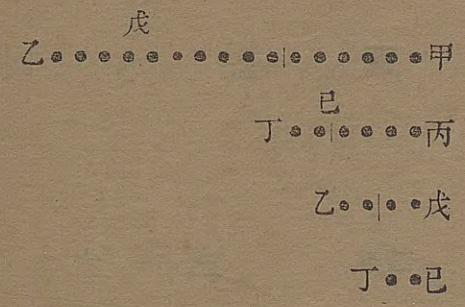 戊
乙 甲
已
丁 丙
乙 戊
丁 已